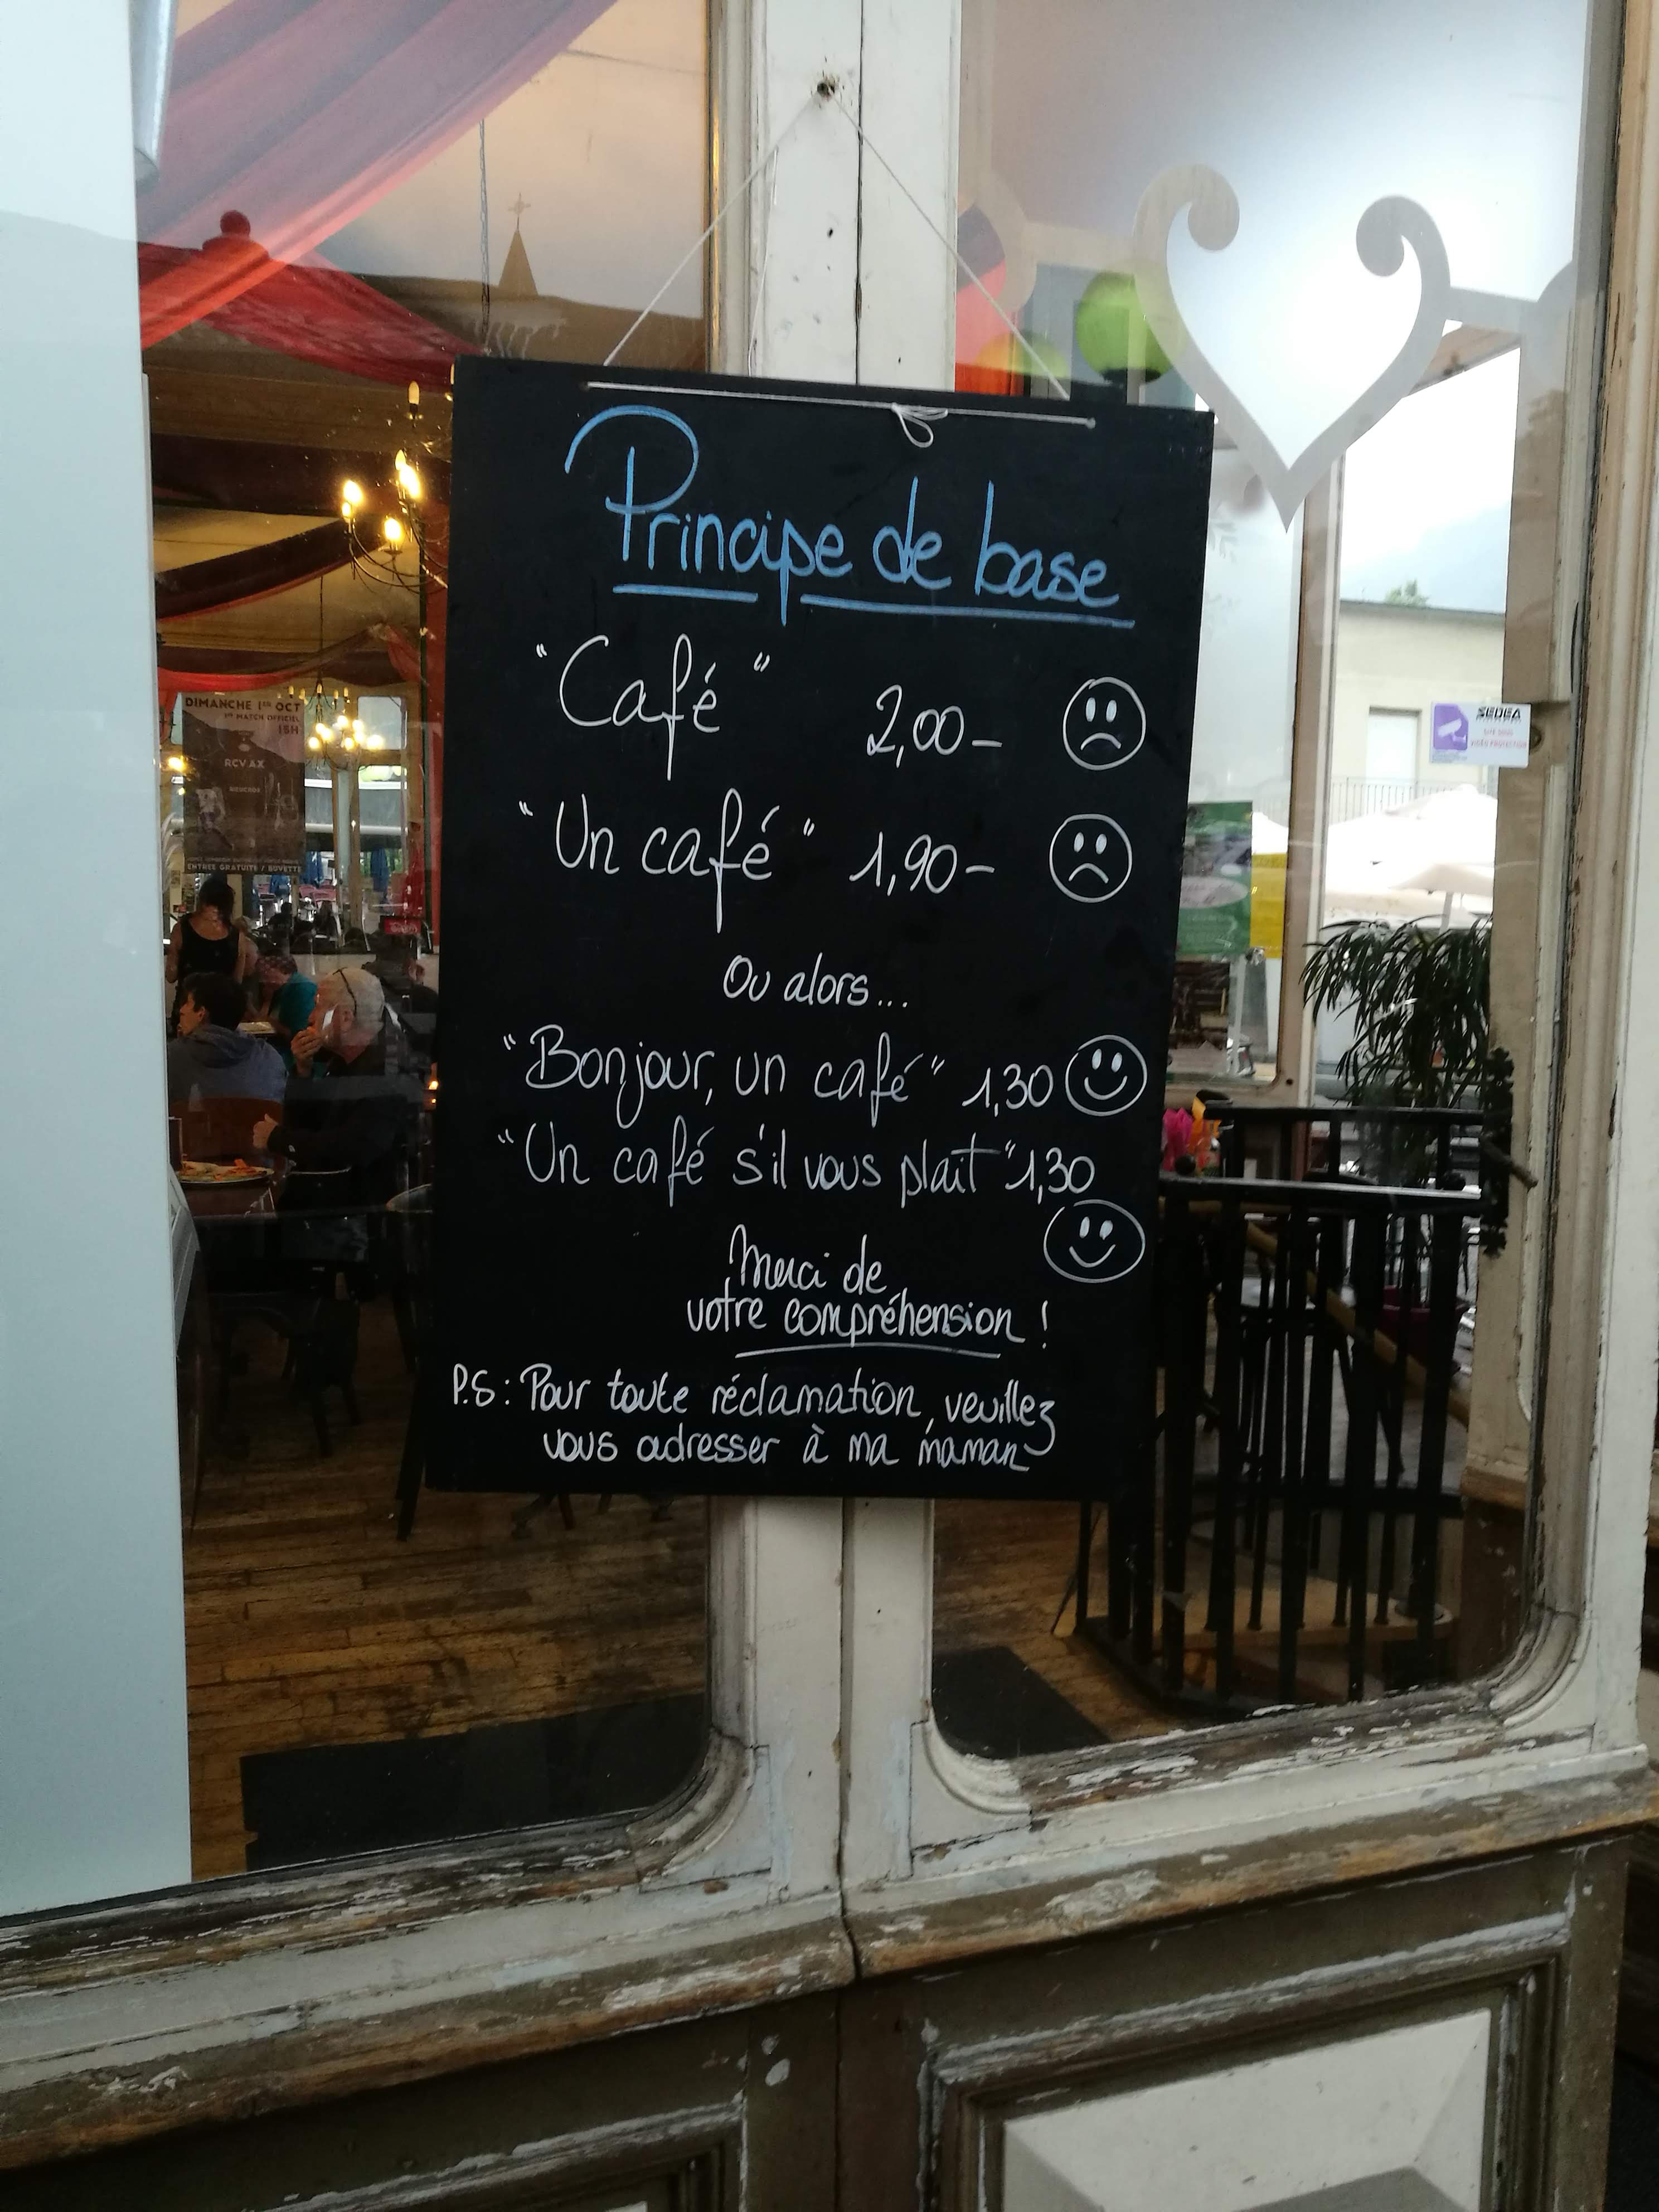 Principe de base
"Café" 2,00-
"Un café" 1,90-
Ou alors...
"Bonjour, un café" 1,30
"Un café s'il vous plait" 1,30
Merci de
votre compréhension !
P.S : Pour toute réclamation, veuillez
vous adresser à ma maman
DIMANCHE 1ER OCT
1ER MATCH OFFICIEL
15H
RCV AX
ENTREE GRATUITE / BUVETTE
SEDEA